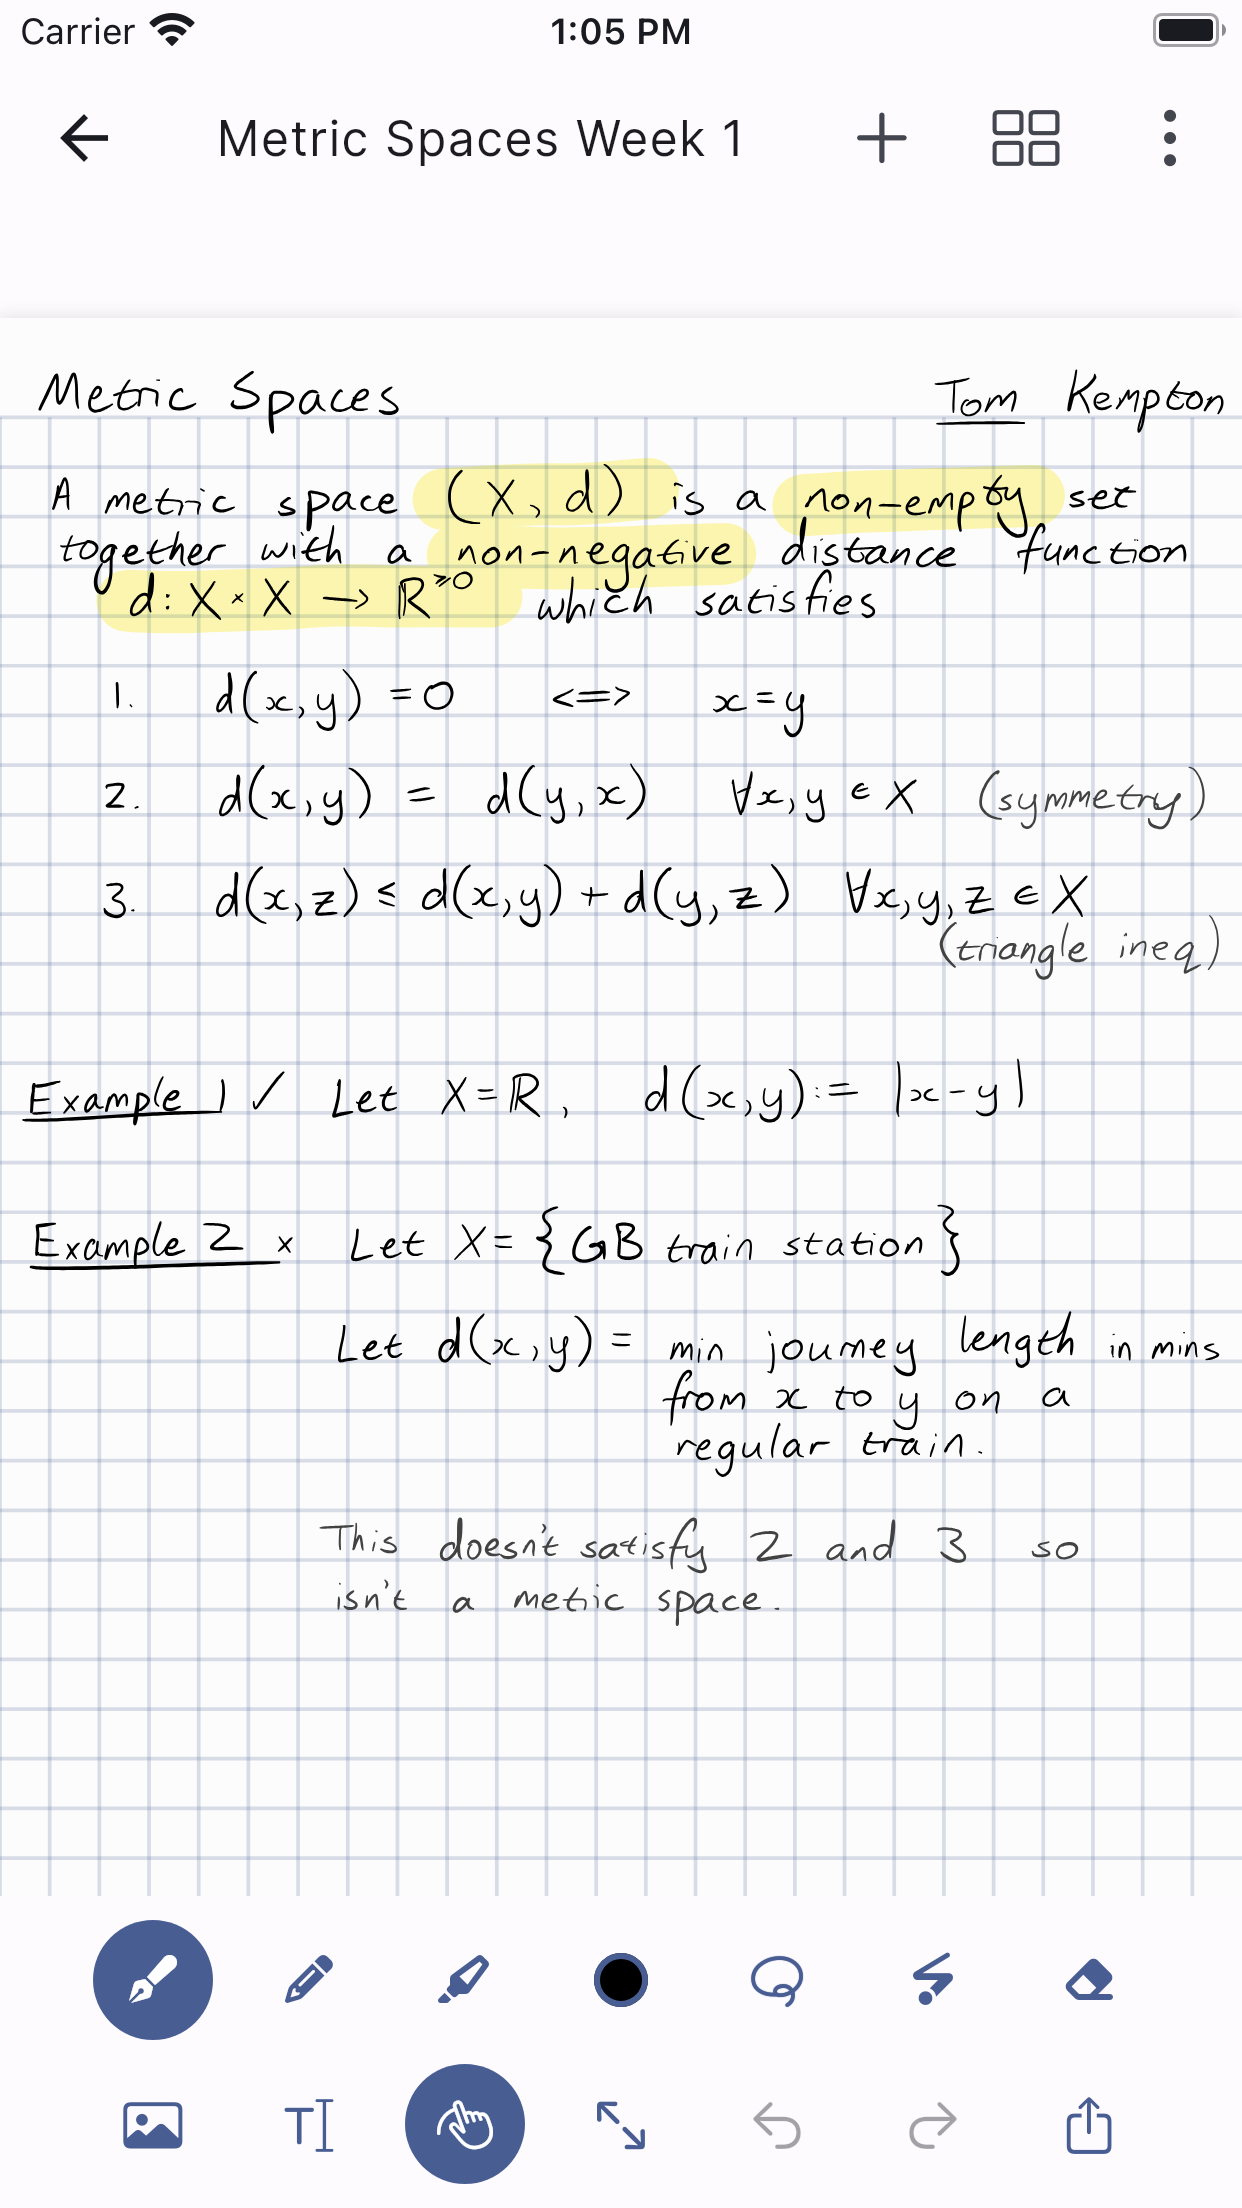 Carrier 1:05 PM
Metric Spaces Week 1
Metric Spaces Tom Kempton
A metric space (X, d) is a non-empty set
together with a non-negative distance function
d: X × X → ℝ^≥0 which satisfies
1. d(x,y) = 0 <=> x = y
2. d(x,y) = d(y,x) ∀x,y ∈ X (symmetry)
3. d(x,z) ≤ d(x,y) + d(y,z) ∀x,y,z ∈ X
(triangle ineq)
Example 1 ✓ Let X = ℝ, d(x,y) := |x-y|
Example 2 × Let X = {GB train station}
Let d(x,y) = min journey length in mins
from x to y on a
regular train.
This doesn't satisfy 2 and 3 so
isn't a metric space.